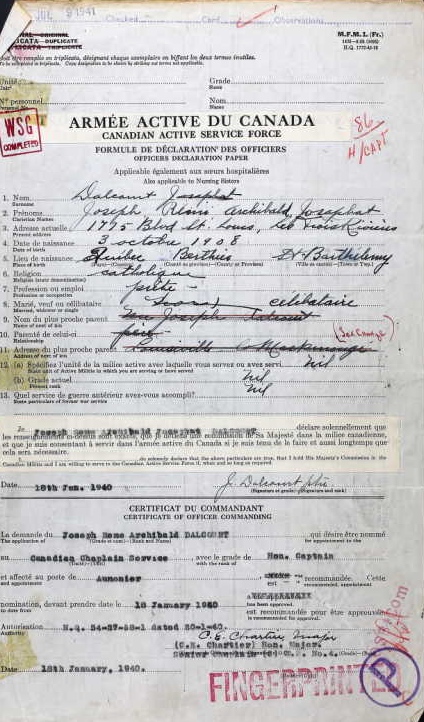 JUL 9 1941
Checked Card Observations
M.F.M. 1. (Fr.)
DUPLICATA - DUPLICATE
TRIPLICATA - TRIPLICATE
H.Q. 1772-45-16
Doit être remplie en triplicata, désignant chaque exemplaire en biffant les deux termes inutiles.
To be completed in triplicate. Copy designation to be shown by striking out terms not applicable.
Unité Grade
Unit Rank
Nº personnel Nom
Name
WSG
COMPLETED
ARMÉE ACTIVE DU CANADA
CANADIAN ACTIVE SERVICE FORCE
86
H/CAPT
FORMULE DE DÉCLARATION DES OFFICIERS
OFFICERS DECLARATION PAPER
Applicable également aux sœurs hospitalières
Also applicable to Nursing Sisters
1. Nom Dalcourt Josaphat
Surname
2. Prénoms Joseph Réme Archibald Josaphat
Christian Names
3. Adresse actuelle 1775 Blvd St. Louis, les Trois Rivières
Present address
4. Date de naissance 3 octobre 1908
Date of birth
5. Lieu de naissance Québec Berthier St Barthélemy
Place of birth
6. Religion catholique
Religion
7. Profession ou emploi prêtre
Profession or occupation
8. Marié, veuf ou célibataire célibataire
Married, widower or single
9. Nom du plus proche parent Joseph
Name of next of kin
10. Parenté de celui-ci père (See Change)
Relationship
11. Adresse du plus proche parent Louiseville Maskinongé
Address of next of kin
12. (a) Spécifiez l'unité de la milice active avec laquelle vous servez ou avez servi nil
State unit of Active Militia in which you are serving or have served
(b) Grade actuel nil
Present rank
13. Quel service de guerre antérieur avez-vous accompli? nil
State particulars of former war service
Je Joseph Reme Archibald Josaphat DALCOURT déclare solennellement que
les renseignements ci-dessus sont exacts, que je détiens une commission de Sa Majesté dans la milice canadienne,
et que je consentirai à servir dans l'armée active du Canada si je suis tenu de le faire et aussi longtemps que
cela sera nécessaire.
I do solemnly declare that the above particulars are true, that I hold His Majesty's Commission in the
Canadian Militia and I am willing to serve in the Canadian Active Service Force if, when and so long as required.
Date 18th Jan. 1940 J. Dalcourt ptre
(Signature et grade) (Signature and rank)
CERTIFICAT DU COMMANDANT
CERTIFICATE OF OFFICER COMMANDING
La demande du Joseph Reme Archibald DALCOURT qui désire être nommé
The application of (Grade et nom) (Rank and Name) for appointment to the
au Canadian Chaplain Service avec le grade de Hon. Captain
with the rank of
et affecté au poste de Aumonier est recommandée. Cette
and appointment is recommended. This appointment
nomination, devant prendre date le 18 January 1940 est recommandée pour être approuvée
to date from has been approved.
is recommended for approval
Autorisation H.Q. 54-27-58-1 dated 20-1-40.
Authority
C.E. Chartier, major
(C.E. Chartier) Hon. Major.
Senior Chaplain (C) M.D. No.4.
Date 18th January, 1940.
FINGERPRINTED
P